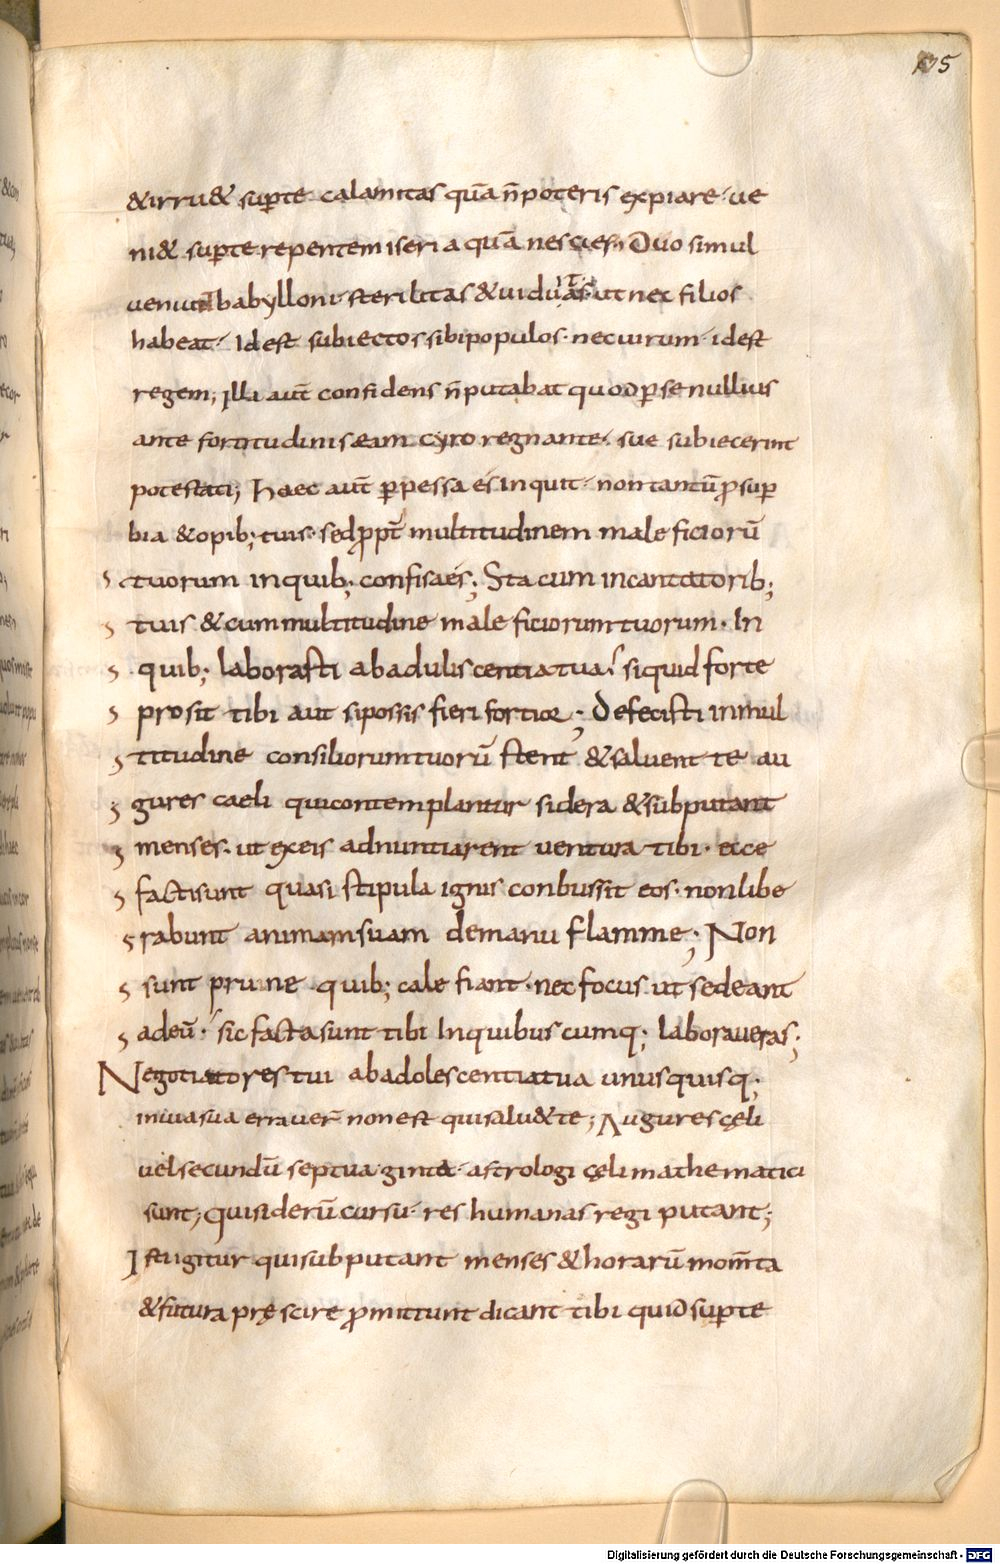 175
&irru& sup̲te calamitas quā n̄ poteris expiare· ue
ni& sup̲te repente miseria quā nescies. Duo simul
venunt babylloni· sterilitas & uiduitas· ut nec filios
habeat· Id est subiectos sibi populos· nec uirum· id est
regem; illa aut̄ confidens n̄ putabat quod p̲ se nullius
ante fortitudinis æam cyro regnante· sue subiecerint
potestati; haec aut̄ p̲pessa és inquit· non tantū p̲ sup̲
bia & opib; tuis· sed p̲pt̄ multitudinem maleficiorū
tuorum in quib; confisa és; Sta cum incantatorib;
tuis & cum multitudine maleficiorum tuorum· In
quib; laborasti ab aduliscentia tua· si quid forte
prosit tibi aut si possis fieri fortior; Defecisti in mul
titudine consiliorum tuorū stent & saluent te au
gures caeli qui contemplantur sidera & subputant
menses· ut ex eis adnuntiarent ventura tibi· ecce
facti sunt quasi stipula ignis conbussit eos· non libe
rabunt animam suam de manu flamme; Non
sunt prune quib; calefiant· nec focus ut sedeant
ad eū· sic facta sunt tibi In quibuscumq; laboraueras;
Negotiatores tui ab adolescentia tua unusquisq;
in uia sua errauer̄ non est qui salu& te; Augures cęli
uel secundū septuaginta· astrologi cęli mathematici
sunt; qui siderū cursu· res humanas regi putant;
Isti igitur qui subputant menses & horarū mom̄ta
& futura pręscire p̲mittunt dicant tibi quid sup̲te
Digitalisierung gefördert durch die Deutsche Forschungsgemeinschaft - DFG